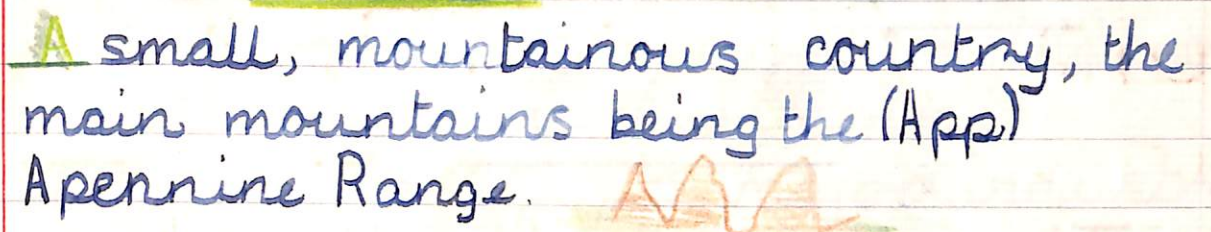 A small, mountainous country, the
main mountains being the (App)
Apennine Range.